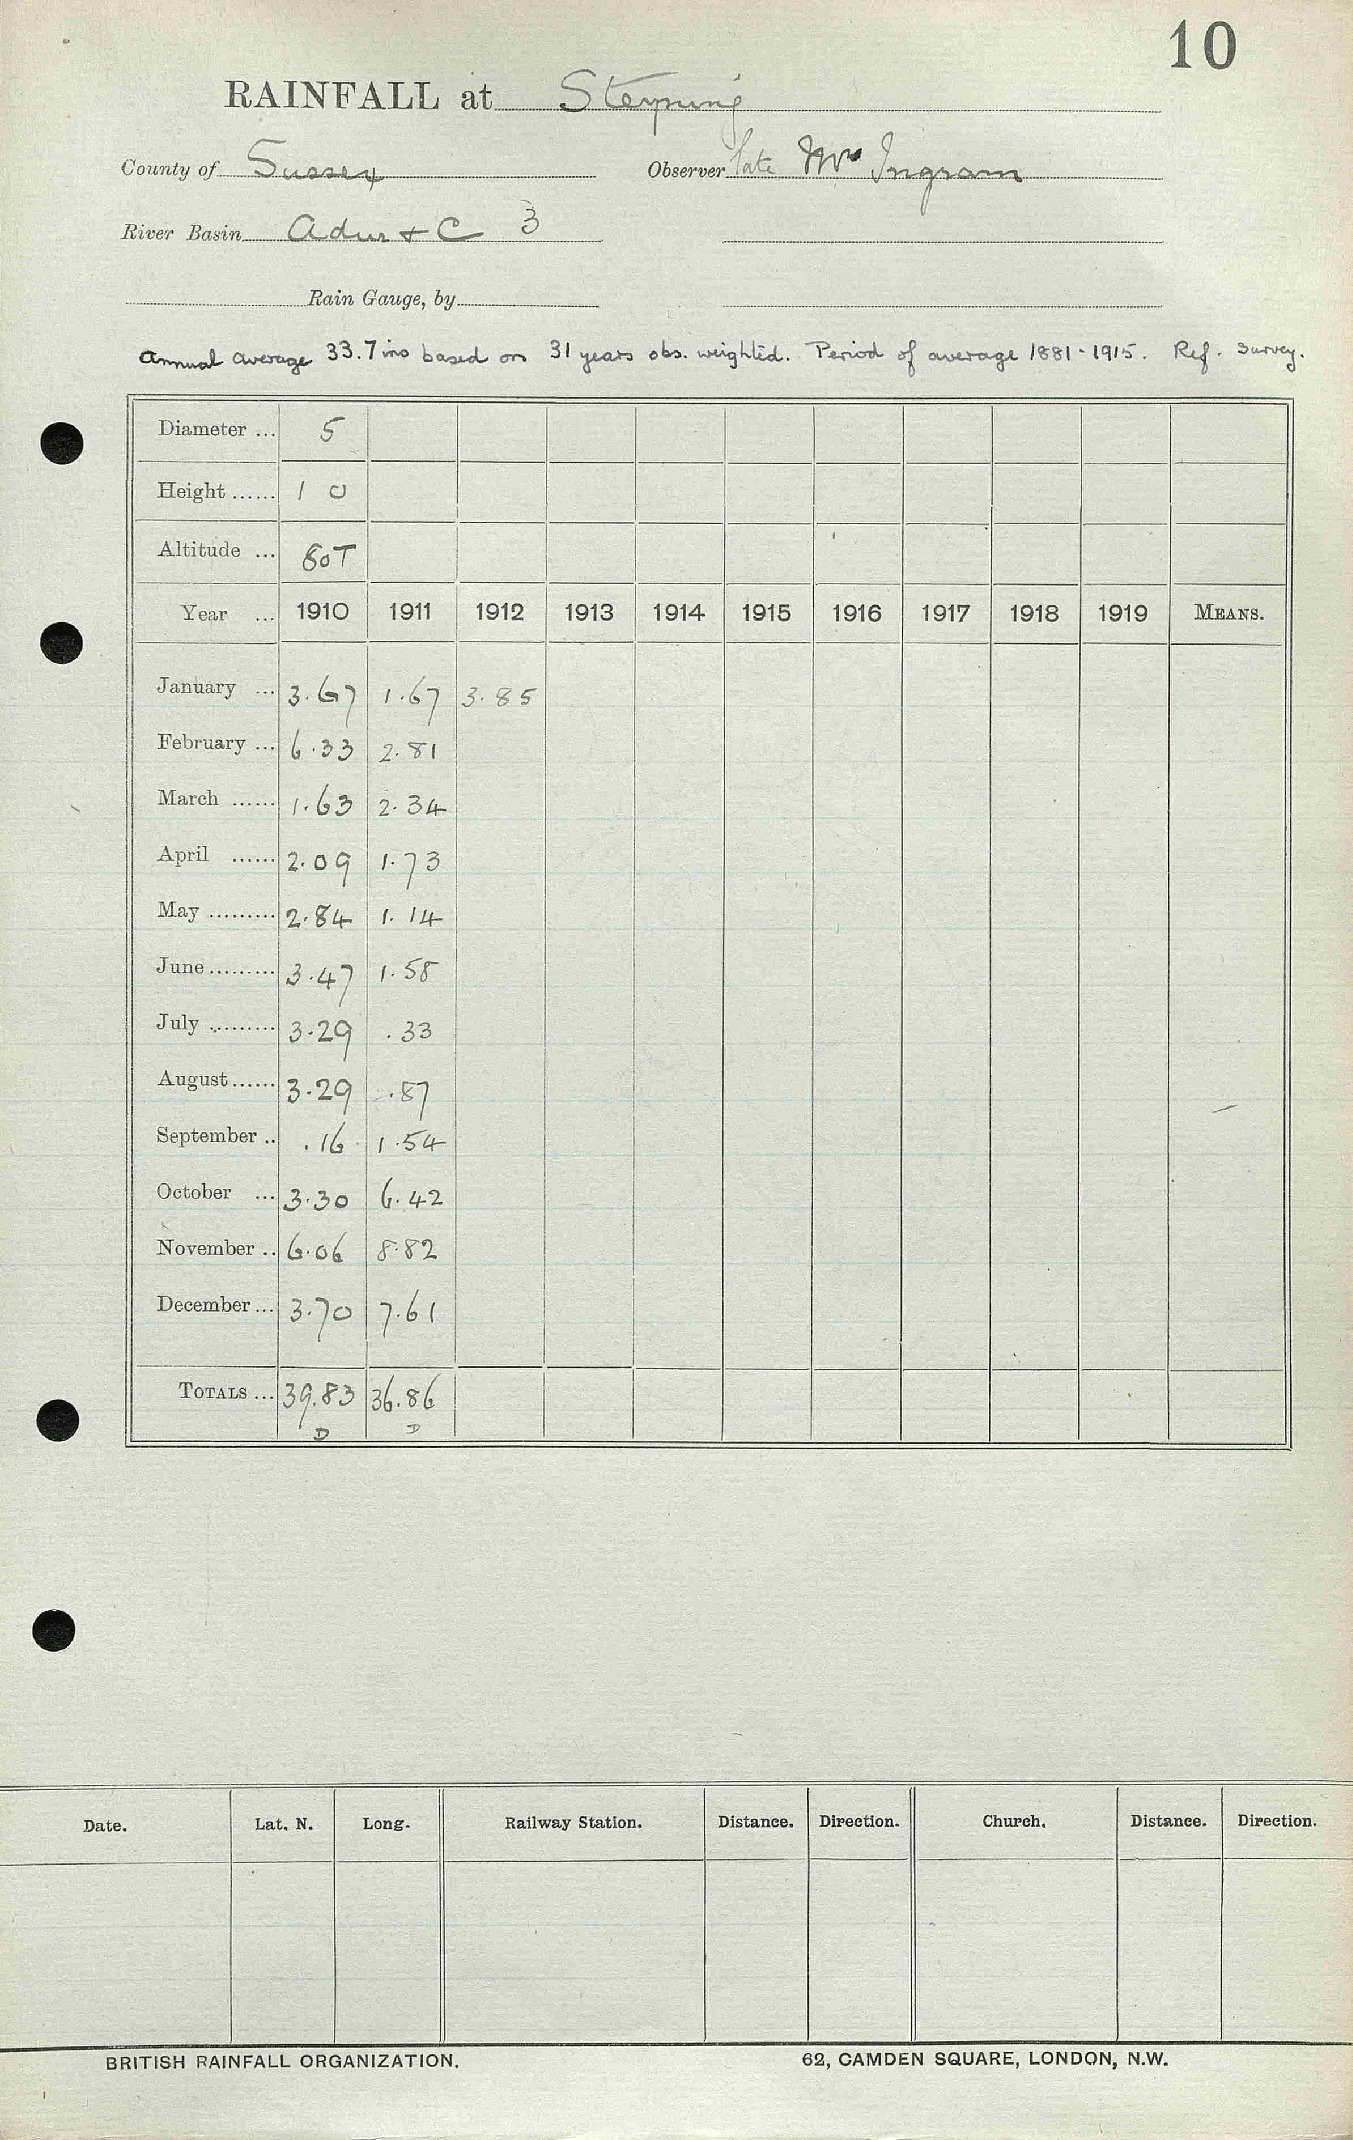 10
RAINFALL at Steyning
County of Sussex Observer late Mrs Ingram
River Basin Adur & C 3
Rain Gauge, by
Annual average 33.7 ins based on 31 years obs. weighted. Period of average 1881-1915. Ref. Survey.
Diameter ... 5
Height ...... 1 0
Altitude ... 80T
Year ... 1910 1911 1912 1913 1914 1915 1916 1917 1918 1919 MEANS.
January ... 3.67 1.67 3.85
February ... 6.33 2.81
March ...... 1.63 2.34
April ...... 2.09 1.73
May ......... 2.84 1.14
June ......... 3.47 1.58
July ......... 3.29 .33
August ...... 3.29 .87
September .. .16 1.54
October ... 3.30 6.42
November .. 6.06 8.82
December ... 3.70 7.61
TOTALS ... 39.83 36.86
D D
Date. Lat. N. Long. Railway Station. Distance. Direction. Church. Distance. Direction.
BRITISH RAINFALL ORGANIZATION. 62, CAMDEN SQUARE, LONDON, N.W.